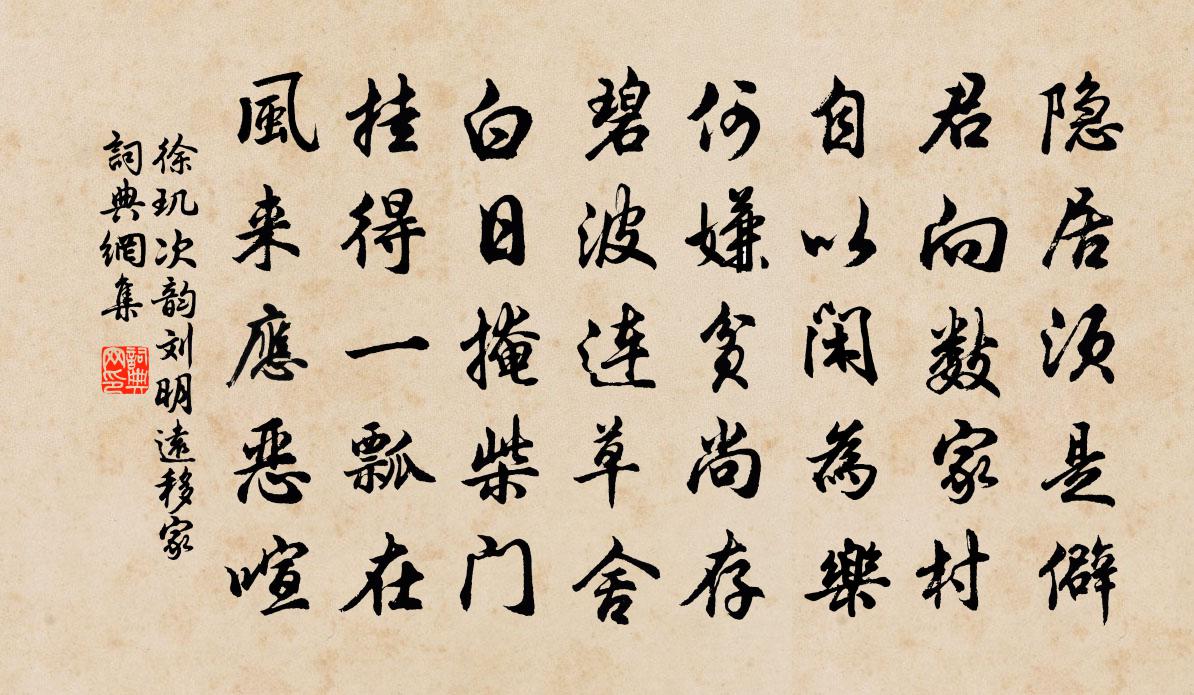 隐居须是僻
君向数家村
自以闲為樂
何嫌贫尚存
碧波连草舍
白日掩柴门
挂得一瓢在
風来應恶喧
徐玑次韵刘明遠移家
詞典網集
詞典网印